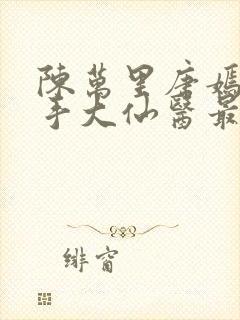 陳萬里唐嫣
手大仙醫最
緋窗